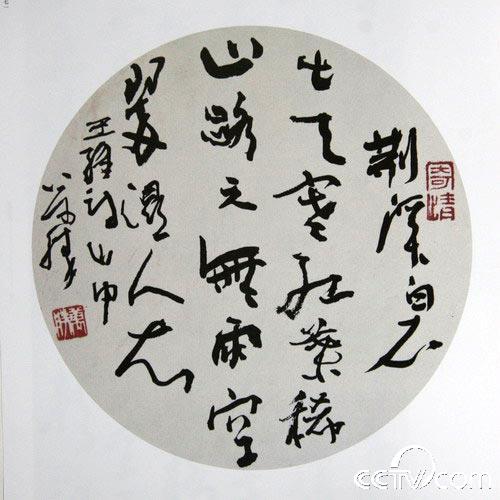 荆溪白石
出天寒紅葉稀
山路元無雨空
翠濕人衣
王維詩山中
寄情
CCTV.com